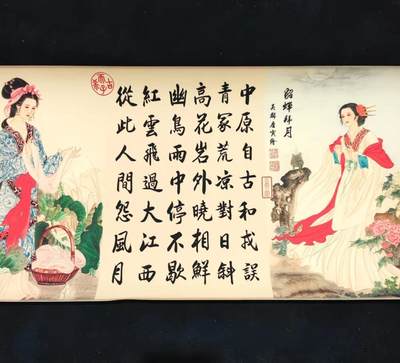 貂蟬拜月
吳郡唐寅繪
中原自古和戎誤
青冢荒凉對日斜
高花岩外曉相鮮
幽鳥雨中停不歇
紅雲飛過大江西
從此人間怨風月